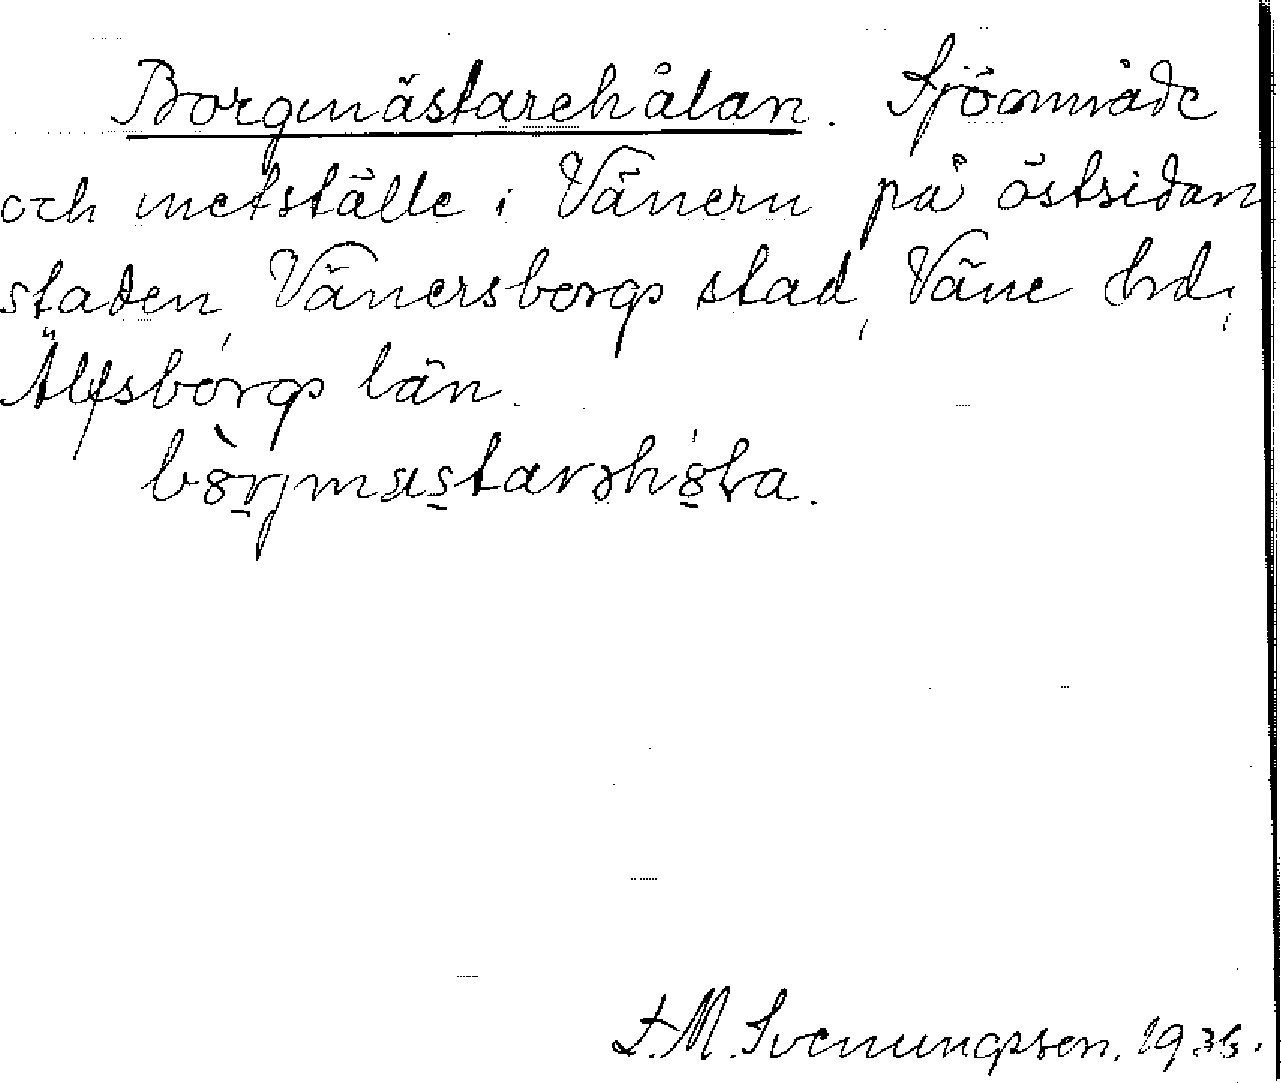 Borgmästarehålan. Sjöområde
och metställe i Vänern på östsidan
staden, Vänersborgs stad, Väne hd,
Älfsborgs län.
S.M. Svenungsson. 1935.